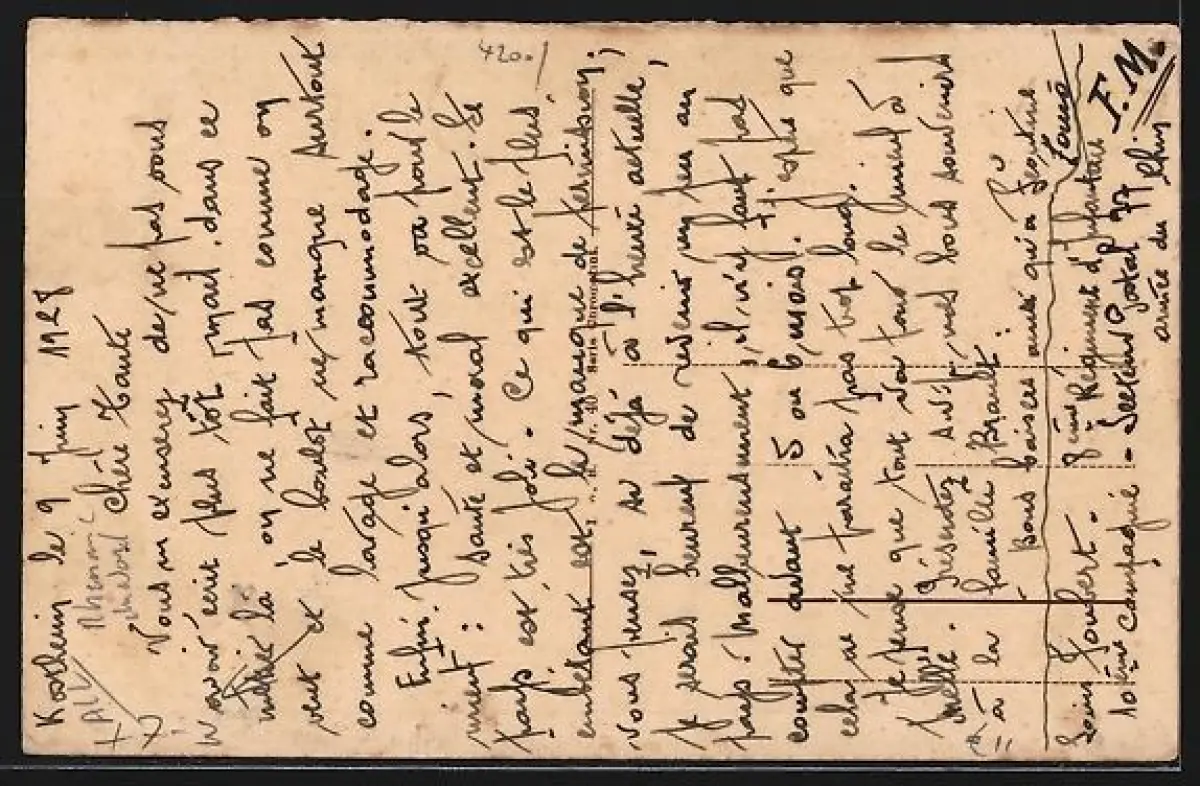 Kostheim le 9 Juin 1928
Chère Tante
Vous m'excuserez de ne pas vous
avoir écrit plus tôt mais dans ce
métier là on ne fait pas comme on
veut et le boulot ne manque surtout
comme lavage et raccommodage.
Enfin jusqu'alors, tout va pour le
mieux : santé et moral excellent. Le
pays est très joli. Ce qui est le plus
embêtant est le manque de permission;
vous pensez, si déjà à l'heure actuelle,
je serais heureux de revenir un peu au
pays. Malheureusement, il n'y faut pas
compter avant 5 ou 6 mois. J'espère que
cela ne me paraîtra pas trop long.
Je pense que tout va pour le mieux à
Présentez S.V.P. mes bons souvenirs
à la famille Brault.
Bons baisers ainsi qu'à
Louis
Louis Joubert. 8ème Régiment d'infanterie
10ème Compagnie - Secteur postal 77
armée du Rhin
F.M.
4200/
ALL
Nr. 40